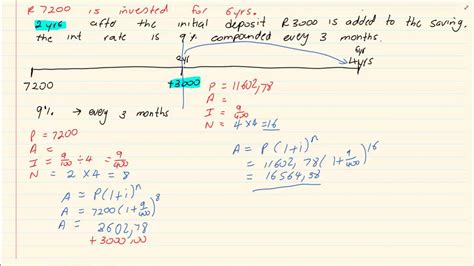 R 7200 is invested for 6yrs.
2 yrs after the initial deposit R 3000 is added to the saving.
the int rate is 9% compounded every 3 months.
2yr
6yr
4yrs
7200
+3000
P = 11602,78
A =
I = 9/100 ÷ 4 = 9/400
N = 4 × 4 = 16
9% → every 3 months
P = 7200
A =
I = 9/100 ÷ 4 = 9/400
N = 2 × 4 = 8
A = P(1+i)^n
A = 7200(1+9/400)^8
A = 8602,78
+3000,00
A = P(1+i)^n
= 11602,78(1+9/400)^16
= 16564,58